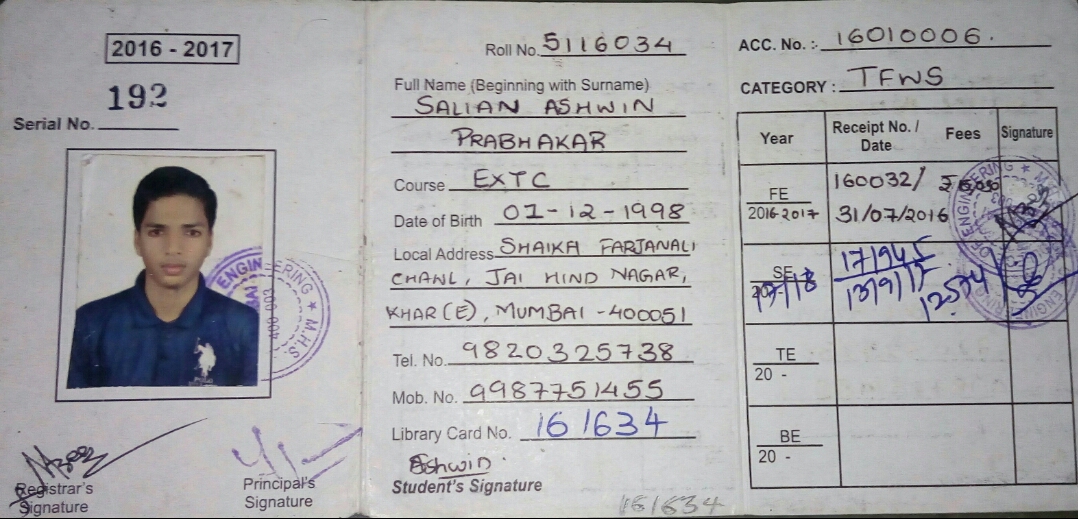 2016 - 2017
192
Serial No.
ENGINEERING ★ M.H.S.
400 008
Registrar's
Signature
Principal's
Signature
Roll No. 5116034
Full Name (Beginning with Surname)
SALIAN ASHWIN
PRABHAKAR
Course EXTC
Date of Birth 01-12-1998
Local Address SHAIKH FARJANALI
CHANL, JAI HIND NAGAR,
KHAR(E), MUMBAI -400051
Tel. No. 9820325738
Mob. No. 9987751455
Library Card No. 161634
Ashwin
Student's Signature
161634
ACC. No. :- 16010006.
CATEGORY : TFWS
Year Receipt No. / Date Fees Signature
FE
2016-2017
160032/
31/07/2016
SE
17/18
171945
13/9/17
12574
TE
20 -
BE
20 -